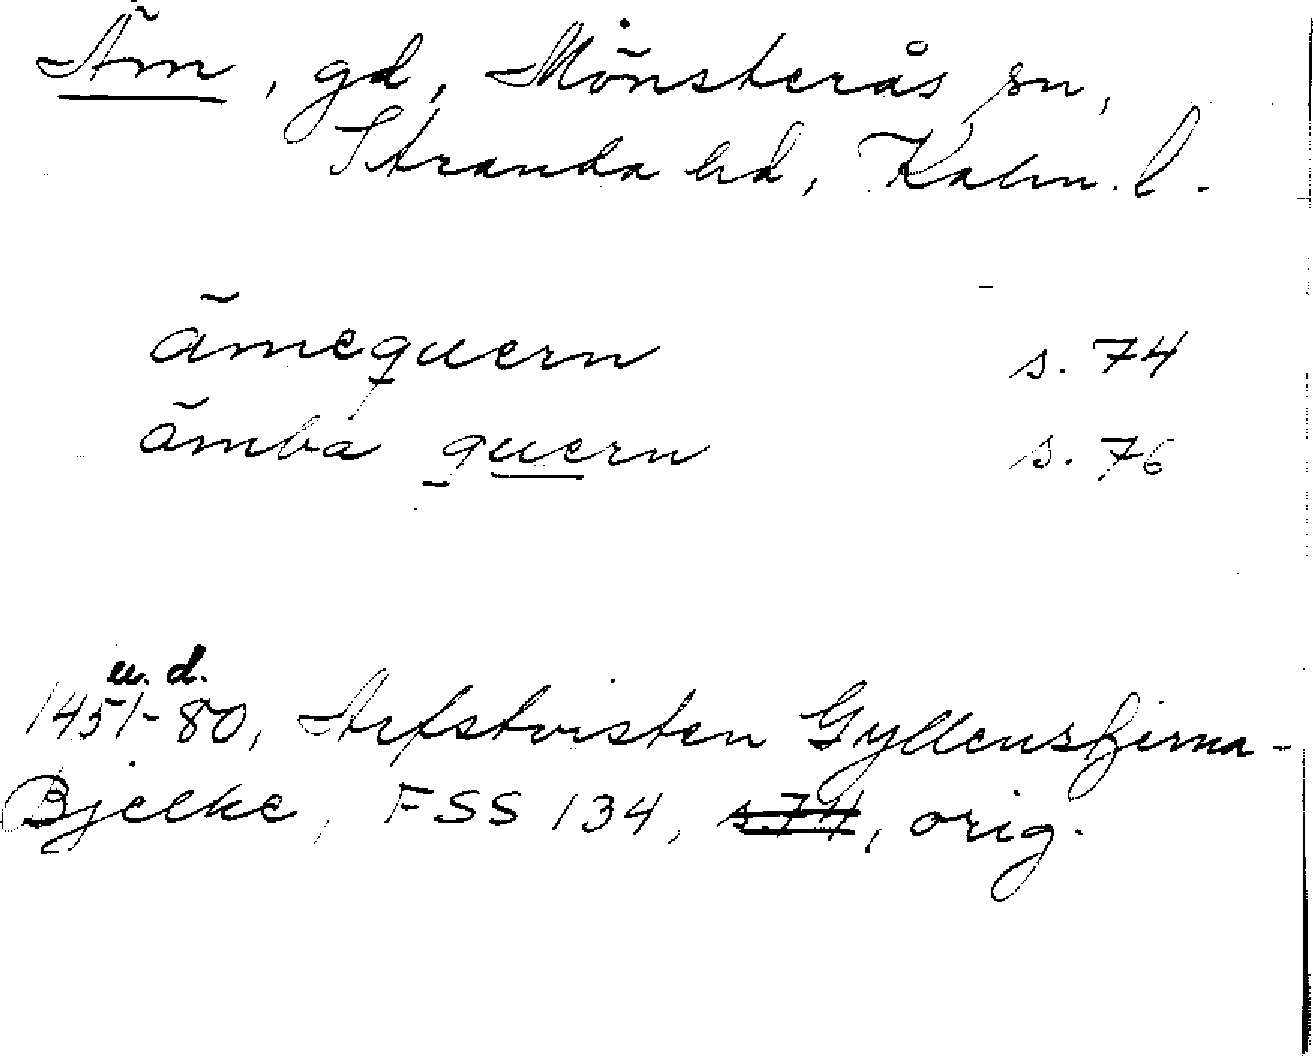 Äm, gd, Mönsterås sn,
Stranda hd, Kalm. l.
ämequern s. 74
ämba quern s. 76
u. d.
1451-80, Arfstvisten Gyllenstjerna-
Bjelke, FSS 134, s. 74, orig.